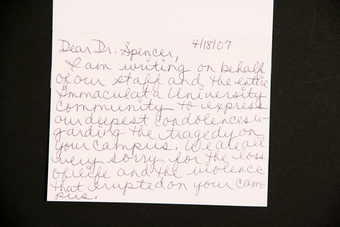 Dear Dr. Spencer, 4/18/07
I am writing on behalf
of our staff and the entire
Immaculata University
community to express
our deepest condolences re-
garding the tragedy on
your campus. We are all
very sorry for the loss
of life and the violence
that erupted on your cam-
pus.